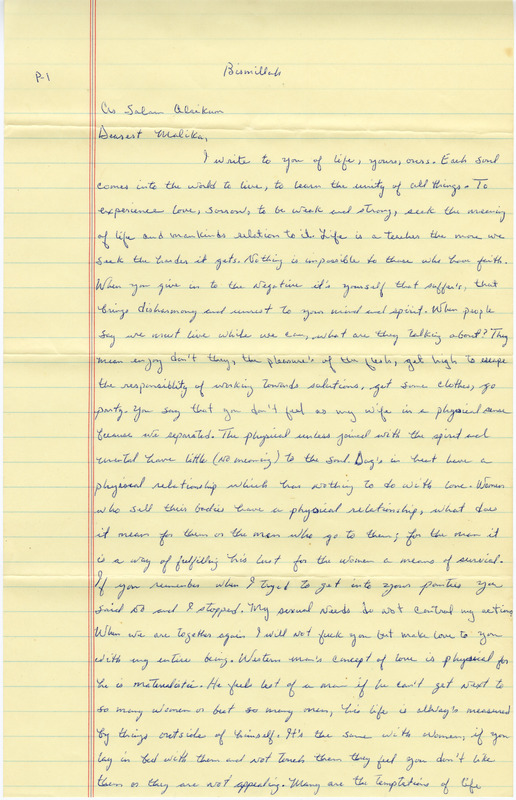 P-1
Bismillah
As Salam Alaikum
Dearest Malika,
I write to you of life, yours, ours. Each soul
comes into the world to live, to learn the unity of all things. To
experience love, sorrow, to be weak and strong, seek the meaning
of life and mankinds relation to it. Life is a teacher the more we
seek the harder it gets. Nothing is impossible to those who have faith.
When you give in to the negative it's yourself that suffer's, that
brings disharmony and unrest to your mind and spirit. When people
say we must live while we can, what are they talking about? They
mean enjoy don't they, the pleasure's of the flesh, get high to escape
the responsiblity of working towards solutions, get some clothes, go
party. You say that you don't feel as my wife in a physical sense
because we separated. The physical unless joined with the spirit and
mental have little (no meaning) to the soul. Dog's in heat have a
physical relationship which has nothing to do with love. Women
who sell their bodies have a physical relationship, what does
it mean for them or the man who go to them; for the man it
is a way of fulfilling his lust for the women a means of survival.
If you remember when I tryed to get into your panties you
said no and I stopped. My sexual needs do not control my actions
When we are together again I will not fuck you but make love to you
with my entire being. Western man's concept of love is physical for
he is materialistic. He feels less of a man if he can't get next to
so many women or but so many men, his life is alway's measured
by things outside of himself. It's the same with women, if you
lay in bed with them and not touch them they feel you don't like
them or they are not appealing. Many are the temptations of life